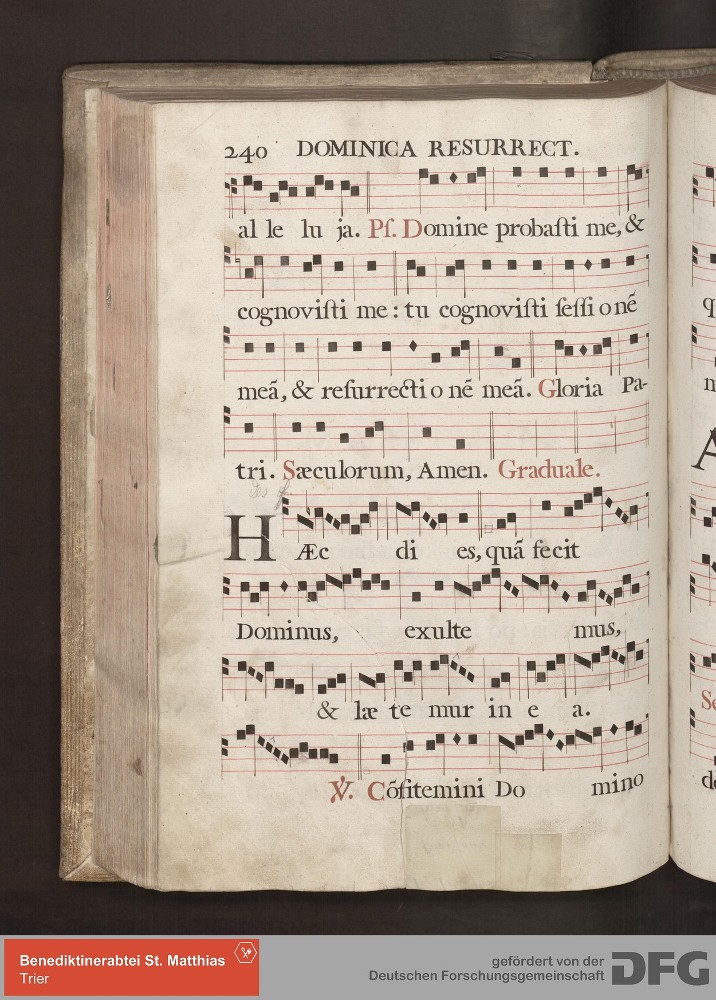 240 DOMINICA RESURRECT.
al le lu ja. Pſ. Domine probaſti me, &
cognoviſti me : tu cognoviſti ſeſſi o nẽ
meã, & reſurrecti o nẽ meã. Gloria Pa-
tri. Sæculorum, Amen. Graduale.
HÆc di es, quã fecit
Dominus, exulte mus,
& læ te mur in e a.
℣. Cõfitemini Do mino
Benediktinerabtei St. Matthias
Trier
gefördert von der
Deutschen Forschungsgemeinschaft
DFG